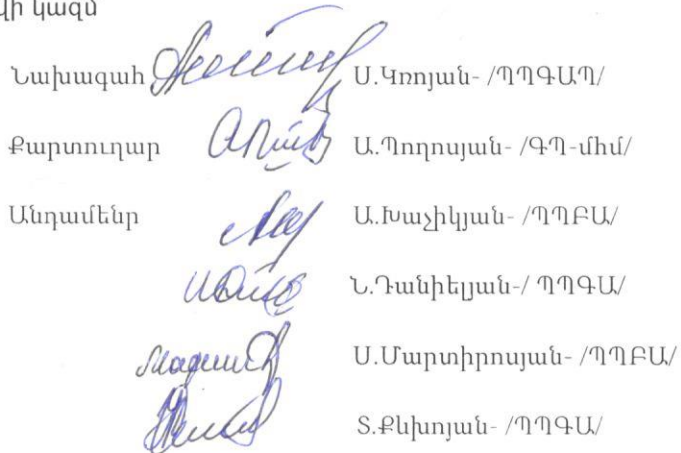 վի կազմ
Նախագահ Ս.Կռոյան- /ՊՊԳԱՊ/
Քարտուղար Ա.Պողոսյան- /ԳՊ-մհմ/
Անդամենր Ա.Խաչիկյան- /ՊՊԲԱ/
Ն.Դանիելյան-/ ՊՊԳԱ/
Ս.Մարտիրոսյան- /ՊՊԲԱ/
Տ.Քևխոյան- /ՊՊԳԱ/